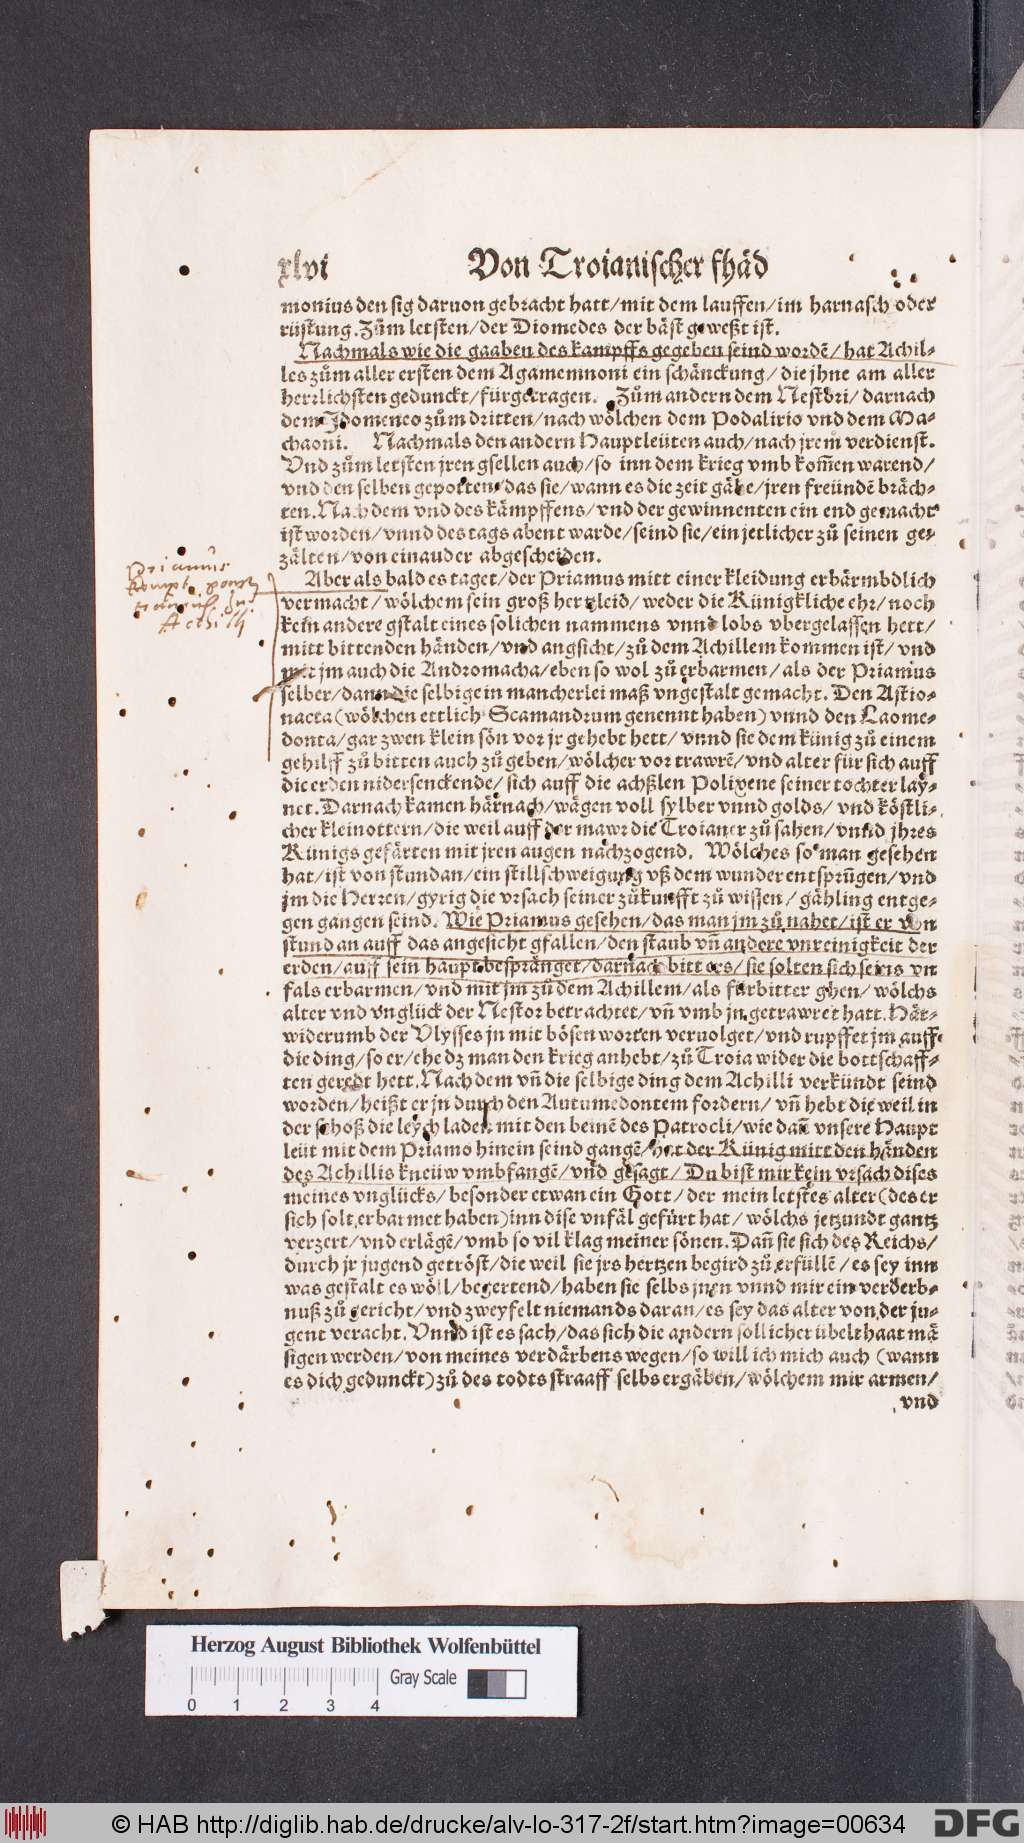 xlvi Von Troianischer fhäd
monius den sig daruon gebracht hatt/mit dem lauffen/im harnasch oder
rüstung. Zům letsten/der Diomedes der bäst geweßt ist.
Nachmals wie die gaaben des kampffs gegeben seind wordẽ/hat Achil⸗
les zům aller ersten dem Agamemnoni ein schänckung/die jhne am aller
herrlichsten gedunckt/fürgetragen. Zům andern dem Nestori/darnach
dem Idomeneo zům dritten/nach wölchen dem Podalirio vnd dem Ma⸗
chaoni. Nachmals den andern Hauptleüten auch/nach jrem verdienst.
Vnd zům letsten jren gsellen auch/so inn dem krieg vmb kom̃en warend/
vnd den selben gepotten/das sie/wann es die zeit gäbe/jren freündẽ bräch⸗
ten. Nach dem vnd des kämpffens/vnd der gewinnenten ein end gemacht
ist worden/vnnd des tags abent warde/seind sie/ein jetlicher zů seinen ge⸗
zälten/von einander abgescheiden.
Priamus
kompt
Achilli
Aber als bald es taget/der Priamus mitt einer kleidung erbärmbdlich
vermacht/wölchem sein groß hertzleid/weder die Künigkliche ehr/noch
kein andere gstalt eines solichen nammens vnnd lobs vbergelassen hett/
mitt bittenden händen/vnd angsicht/zů dem Achillem kommen ist/vnd
mit jm auch die Andromacha/eben so wol zů erbarmen/als der Priamus
selber/dann die selbige in mancherlei maß vngestalt gemacht. Den Astio⸗
nacta (wölchen ettlich Scamandrum genennt haben) vnnd den Laome⸗
donta/gar zwen klein sön vor jr gehebt hett/vnnd sie dem künig zů einem
gehilff zů bitten auch zů geben/wölcher vor trawrẽ/vnd alter für sich auff
die erden nidersenckende/sich auff die achßlen Polixene seiner tochter lay⸗
net. Darnach kamen härnach/wägen voll sylber vnnd golds/vnd köstli⸗
cher kleinottern/die weil auff der mawr die Troianer zů sahen/vnnd jhres
Künigs gefärten mit jren augen nachzogend. Wölches so man gesehen
hat/ist von stundan/ein stillschweigung vß dem wunder entsprũgen/vnd
jm die Herren/gyrig die vrsach seiner zůkunfft zů wissen/gähling entge⸗
gen gangen seind. Wie Priamus gesehen/das man jm zů nahet/ist er von
stund an auff das angesicht gfallen/den staub vñ andere vnreinigkeit der
erden/auff sein haupt bespränget/darnach bitt ers/sie solten sich seins vn
fals erbarmen/vnd mit jm zů dem Achillem/als fürbitter ghen/wölchs
alter vnd vnglück der Nestor betrachtet/vñ vmb jn getrawret hatt. Här⸗
widerumb der Vlysses jn mit bösen worten veruolget/vnd rupffet jm auff
die ding/so er/ehe dz man den krieg anhebt/zů Troia wider die bottschaff⸗
ten geredt hett. Nach dem vñ die selbige ding dem Achilli verkündt seind
worden/heißt er jn durch den Autumedontem fordern/vñ hebt die weil in
der schoß die leych laden mit den beinẽ des Patrocli/wie dañ vnsere Haupt
leüt mit dem Priamo hinein seind gangẽ/hat der Künig mitt den händen
des Achillis kneüw vmbfangẽ/vnd gesagt/Du bist mir kein vrsach dises
meines vnglücks/besonder etwan ein Gott/der mein letstes alter (des er
sich solt erbarmet haben) inn dise vnfäl gefürt hat/wölchs jetzundt gantz
verzert/vnd erlägẽ/vmb so vil klag meiner sönen. Dañ sie sich des Reichs/
durch jr jugend getröst/die weil sie jrs hertzen begird zů erfüllẽ/es sey inn
was gestalt es wöll/begertend/haben sie selbs jnen vnnd mir ein verderb⸗
nuß zů gericht/vnd zweyfelt niemands daran/es sey das alter von der ju⸗
gent veracht. Vnnd ist es sach/das sich die andern sollicher übelthaat mä
sigen werden/von meines verdärbens wegen/so will ich mich auch (wann
es dich gedunckt) zů des todts straaff selbs ergäben/wölchem mir armen/
vnd
Herzog August Bibliothek Wolfenbüttel
Gray Scale
0 1 2 3 4
© HAB http://diglib.hab.de/drucke/alv-lo-317-2f/start.htm?image=00634 DFG